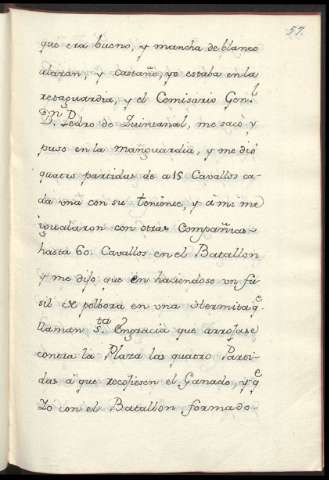 57.
que era bueno, y mancha de blanco
alazan, y castaño, yo estaba en la
retaguardia, y el Comisario Gen.l
D.n Pedro de Quintanal, me sacó y
puso en la manguardia, y me dió
quatro partidas de a 15 Cavallos ca-
da una con su teniente, y á mi me
igualaron con otras Compañias
hasta 60. Cavallos en el Batallon
y me dijo que en haciendose un fu-
sil de polbora en una Hermita q.e
llaman S.ta Engracia que arrojase
contra la Plaza las quatro Parti-
das á que recojiesen el Ganado, y q.e
Yó con el Batallon formado